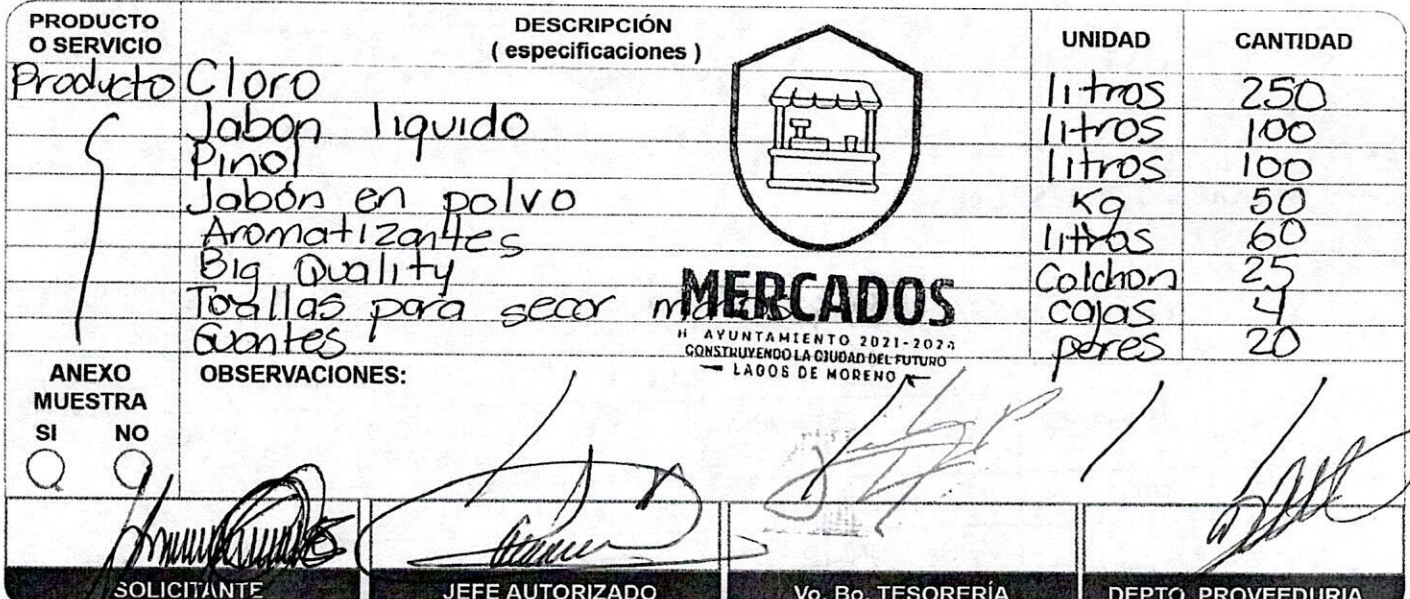 PRODUCTO O SERVICIO DESCRIPCIÓN ( especificaciones ) UNIDAD CANTIDAD
Producto Cloro litros 250
Jabon liquido litros 100
Pinol litros 100
Jabón en polvo Kg 50
Aromatizantes litros 60
Big Quality Colchon 25
Toallas para secar cajas 4
Guantes pares 20
MERCADOS
H AYUNTAMIENTO 2021-2024
CONSTRUYENDO LA CIUDAD DEL FUTURO
LAGOS DE MORENO
ANEXO MUESTRA
SI NO
OBSERVACIONES:
SOLICITANTE JEFE AUTORIZADO Vo. Bo. TESORERÍA DEPTO. PROVEEDURIA